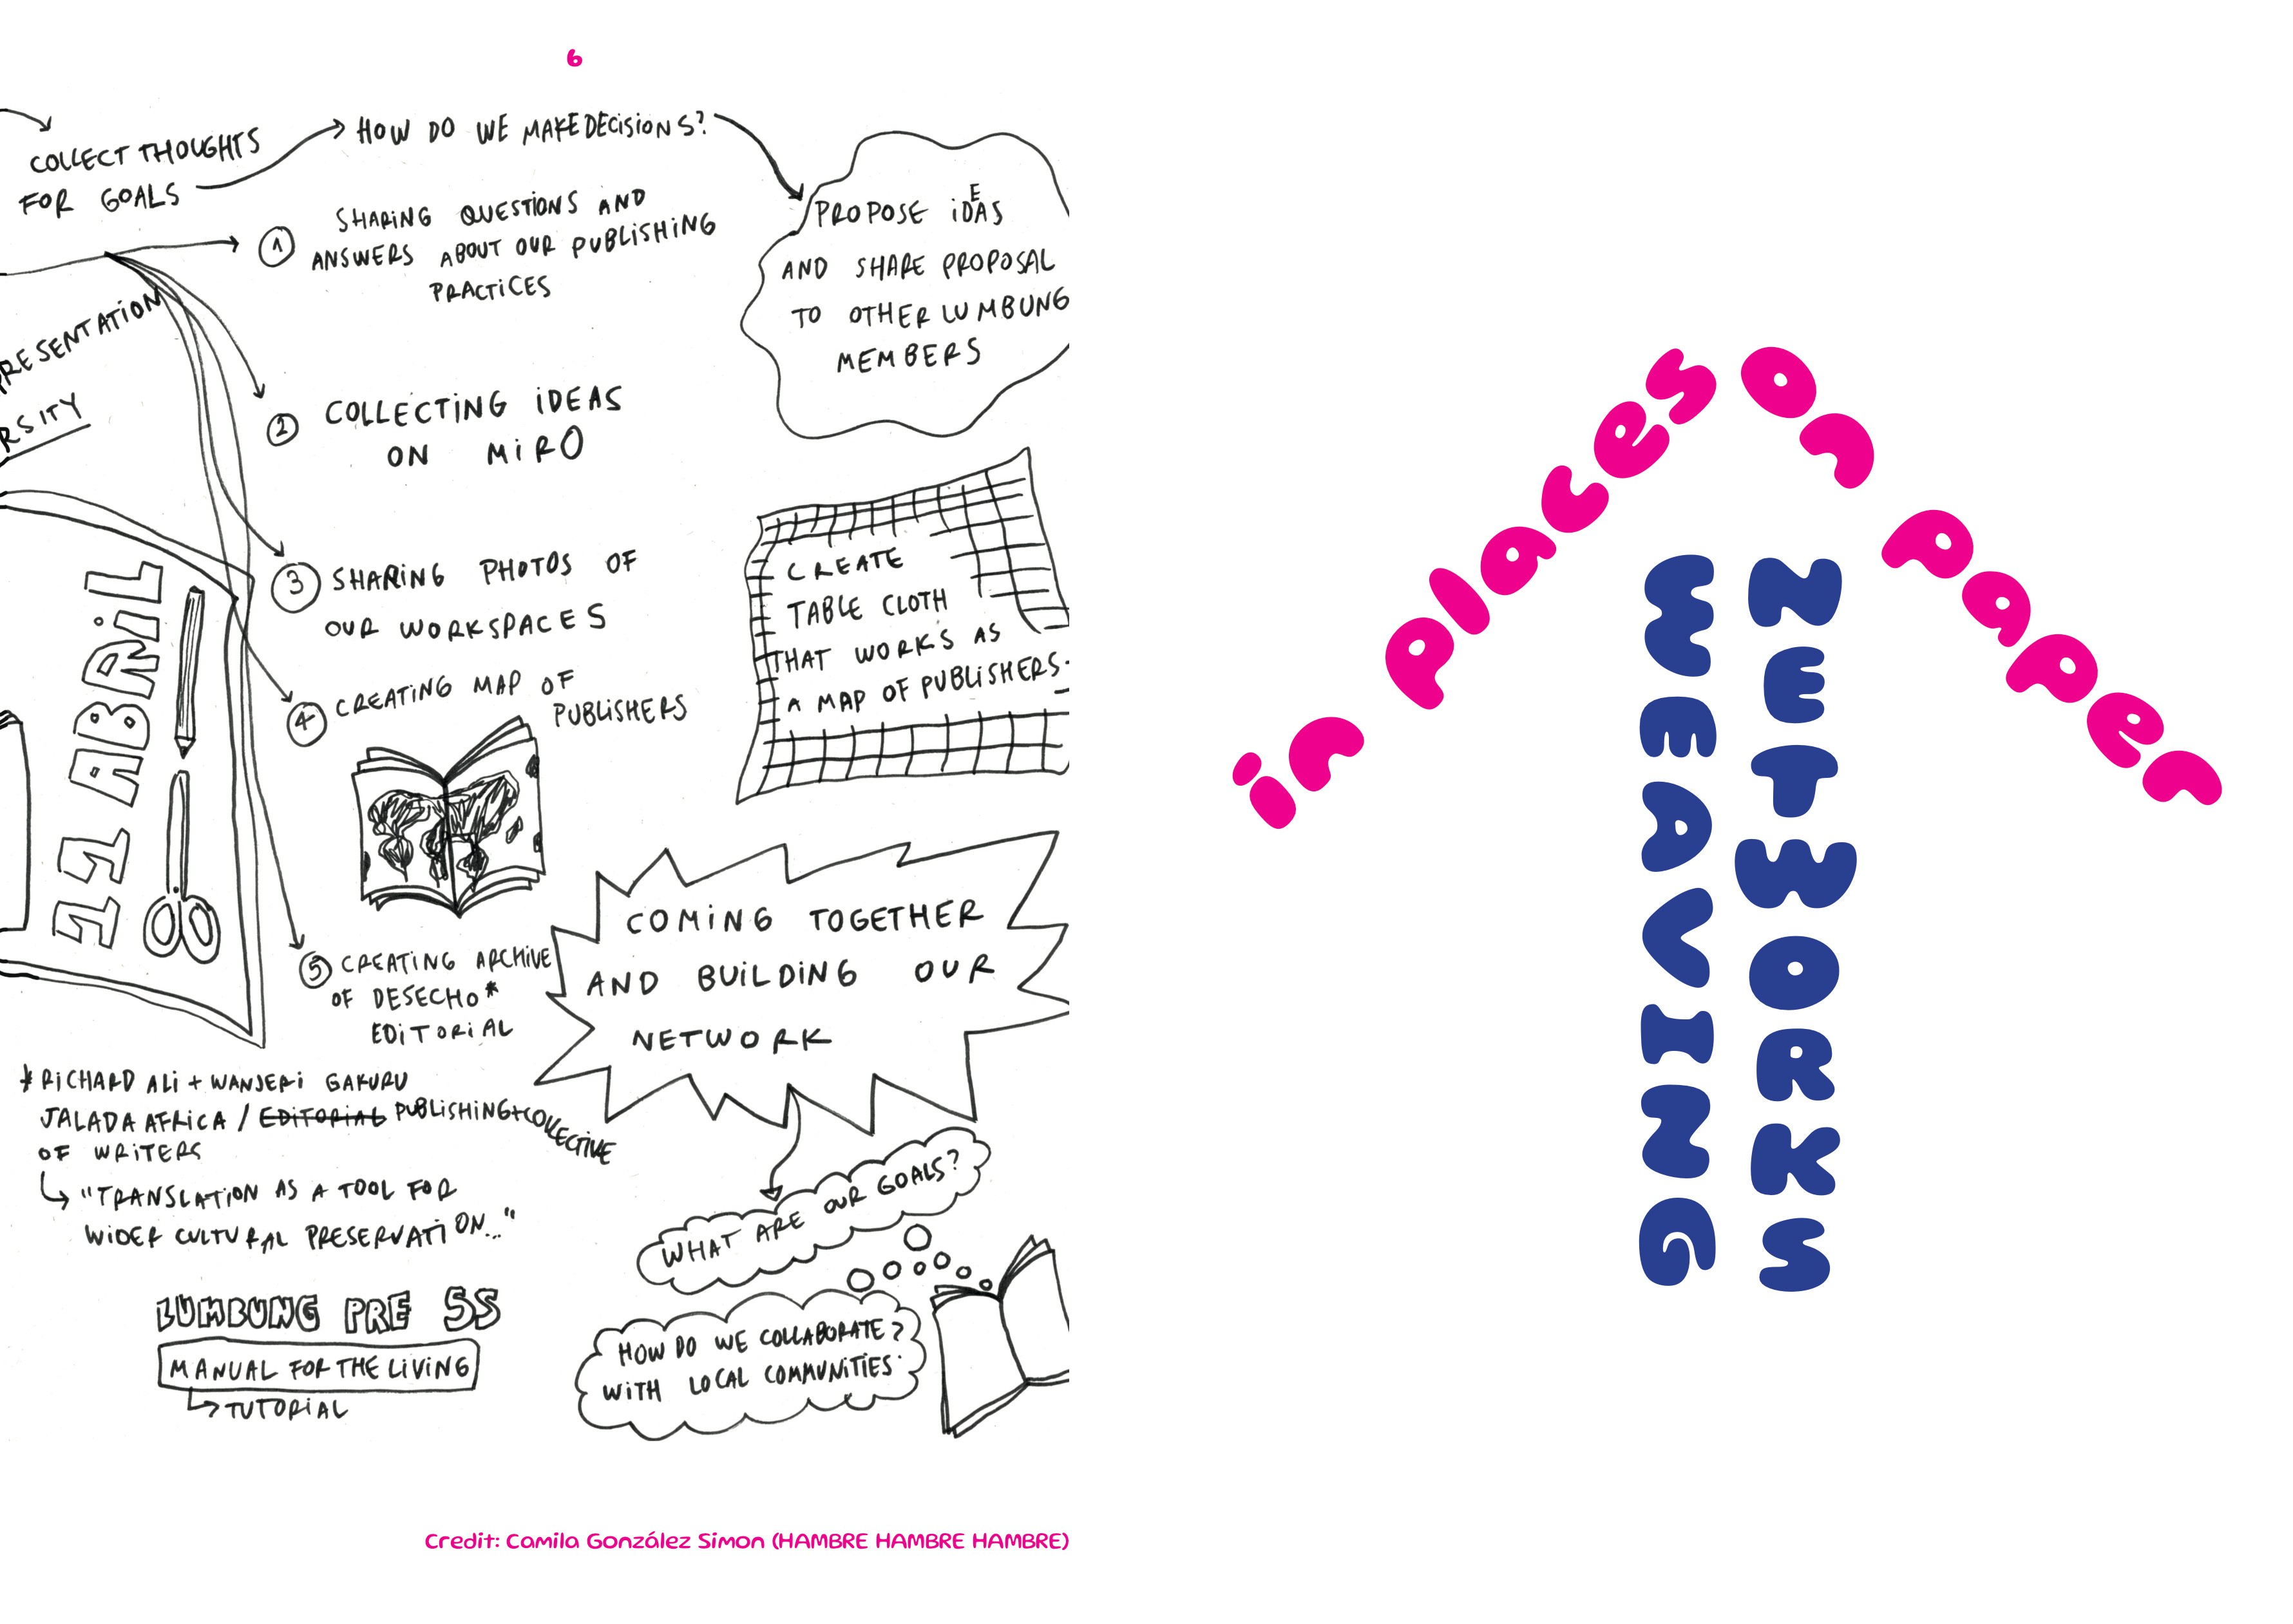 6
COLLECT THOUGHTS
FOR GOALS
HOW DO WE MAKE DECISIONS?
PROPOSE IDEAS
AND SHARE PROPOSAL
TO OTHER LUMBUNG
MEMBERS
1 SHARING QUESTIONS AND
ANSWERS ABOUT OUR PUBLISHING
PRACTICES
RESENTATION
RSITY
2 COLLECTING IDEAS
ON MIRO
3 SHARING PHOTOS OF
OUR WORKSPACES
4 CREATING MAP OF
PUBLISHERS
11 ABRIL
CREATE
TABLE CLOTH
THAT WORKS AS
A MAP OF PUBLISHERS.
5 CREATING ARCHIVE
OF DESECHO*
EDITORIAL
COMING TOGETHER
AND BUILDING OUR
NETWORK
* RICHARD ALI + WANJERI GAKURU
JALADA AFRICA / EDITORIAL PUBLISHING + COLLECTIVE
OF WRITERS
"TRANSLATION AS A TOOL FOR
WIDER CULTURAL PRESERVATION..."
WHAT ARE OUR GOALS?
HOW DO WE COLLABORATE?
WITH LOCAL COMMUNITIES
LUMBUNG PRESS
MANUAL FOR THE LIVING
TUTORIAL
Credit: Camila González Simon (HAMBRE HAMBRE HAMBRE)
in places on paper
WEAVING
NETWORKS